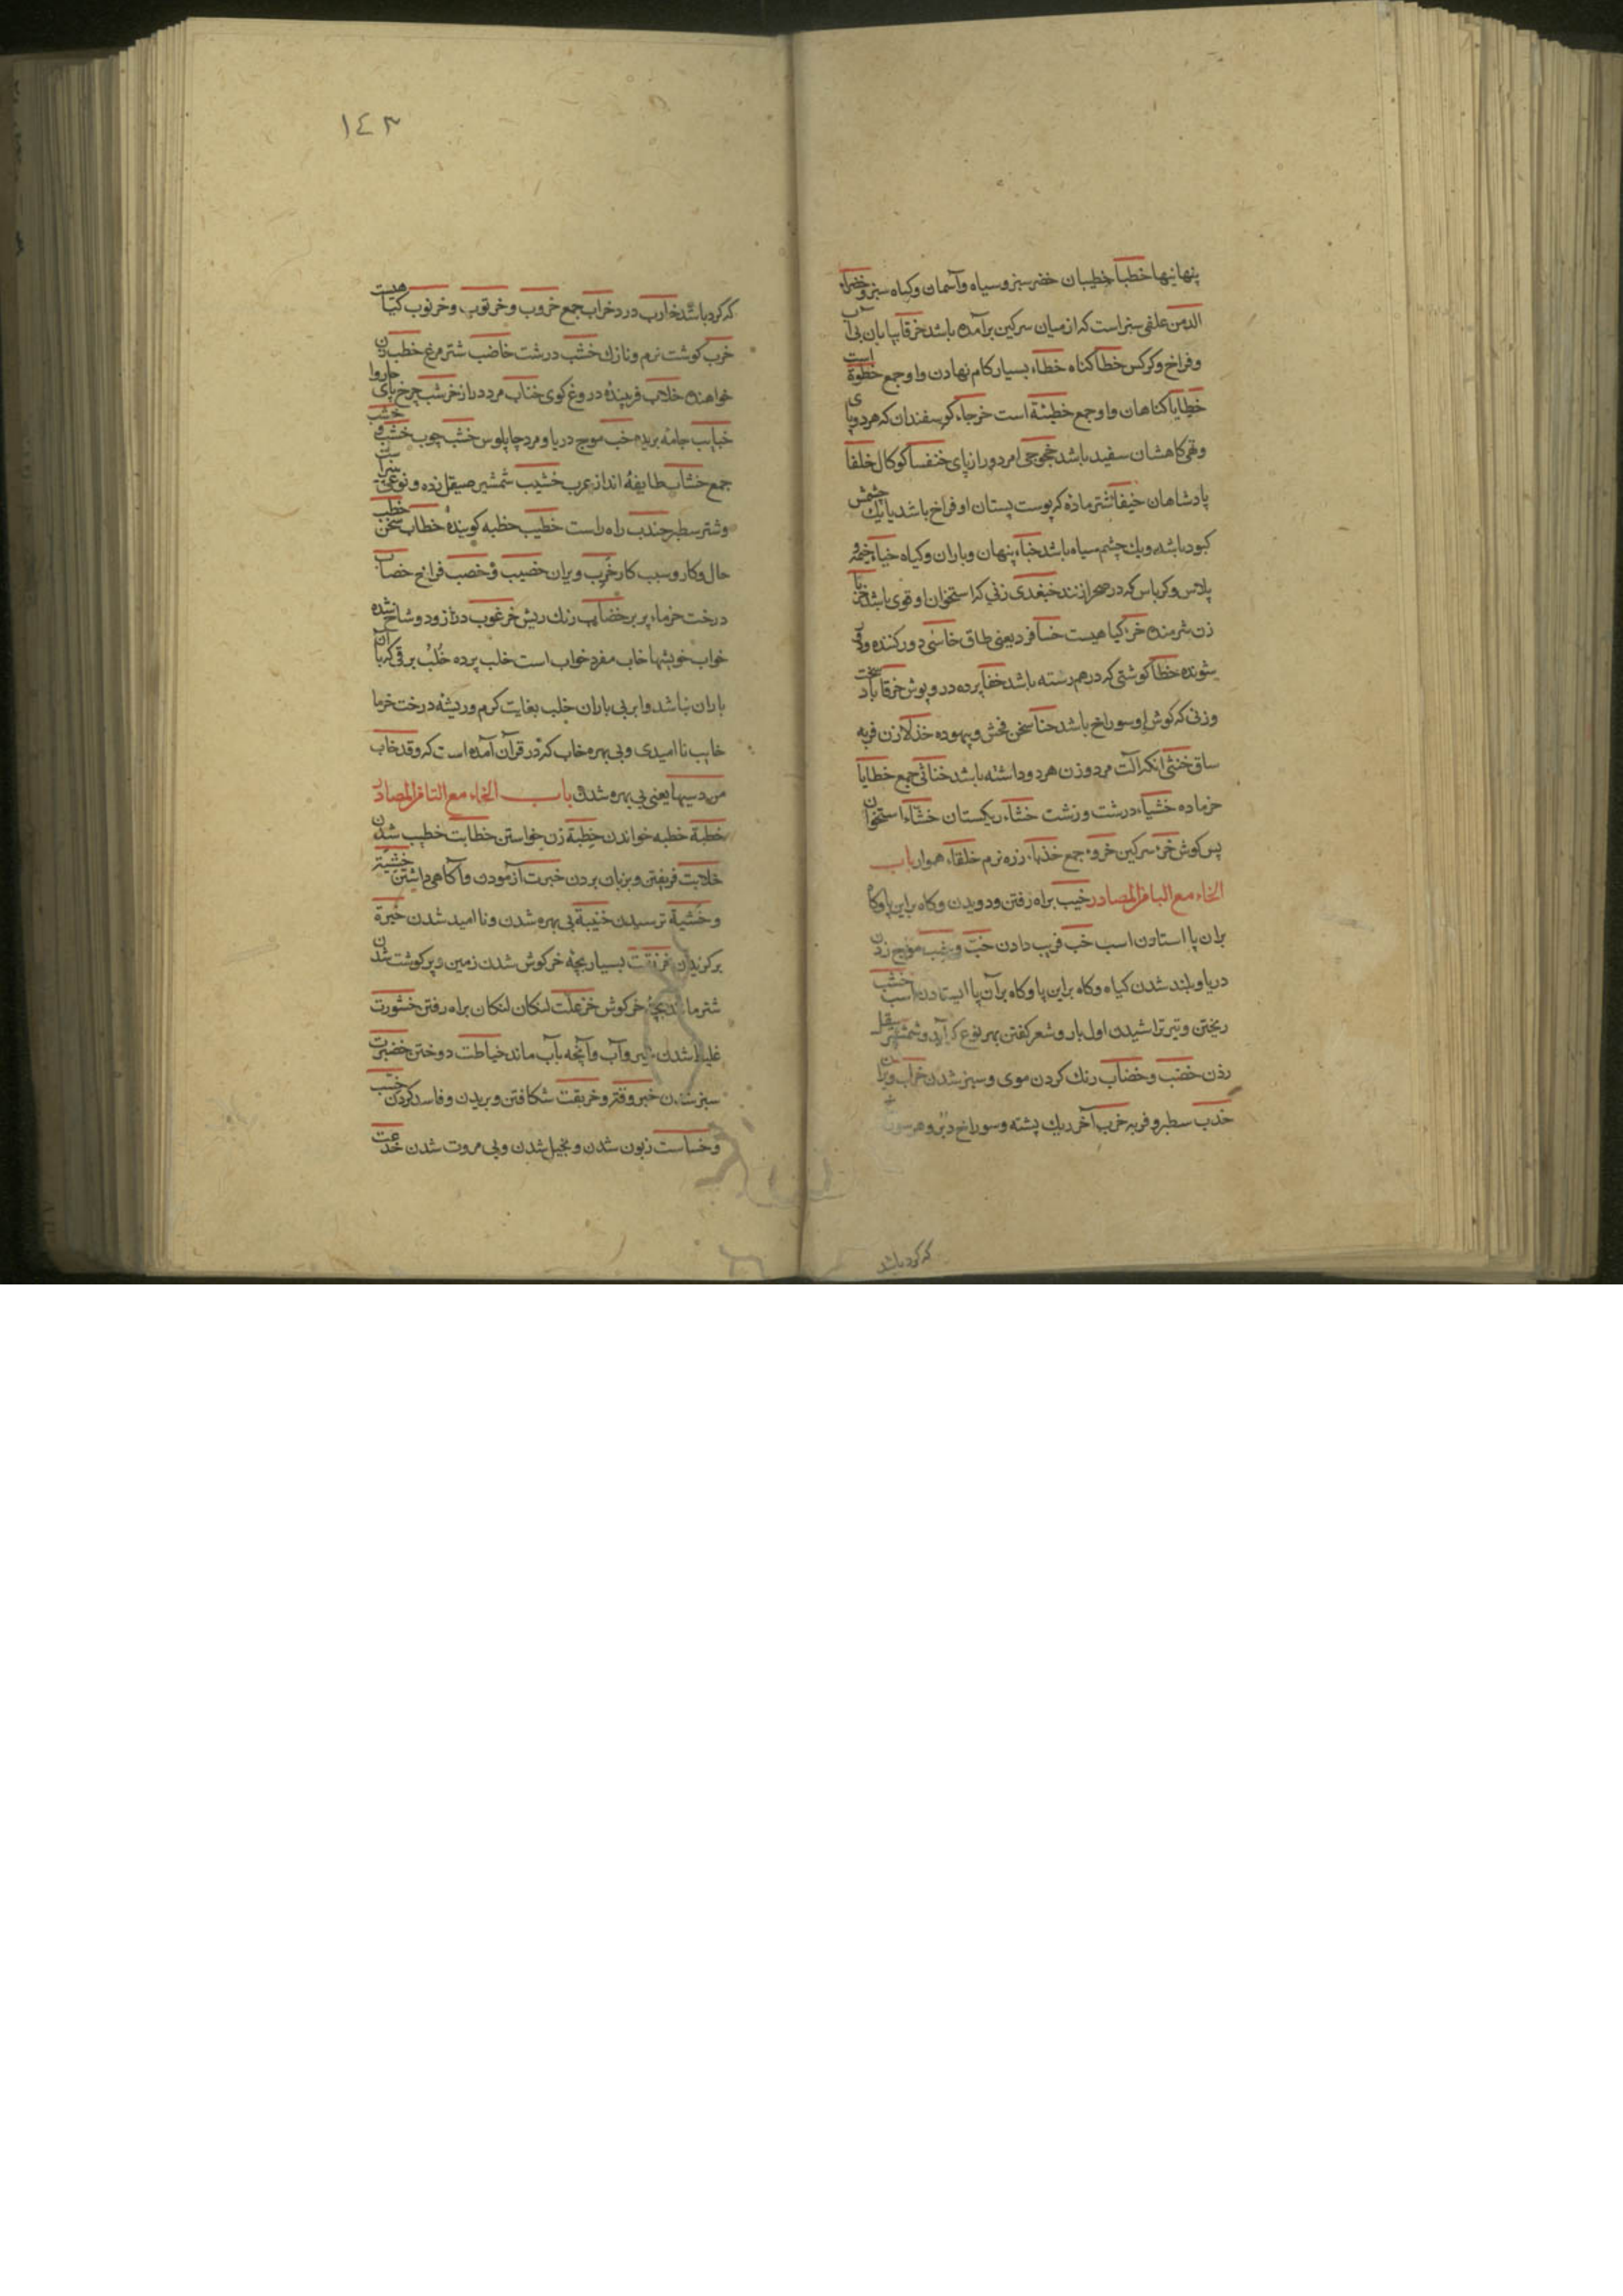 پنهانیها خطبا خطیبان خضر سبز و سیاه و آسمان و کیاه سبز و خضراء
الدمن علفی سبز است که از میان سرکین برآمده باشد خرقا بیابان بی آب
و فراخ و کرکس خطا کناه خطاء بسیار کام نهادن و او جمع خطوة است
خطایا کناهان و او جمع خطیئة است خرجاء کوسفندان که هر دو پای
و تهی کاهشان سفید باشد خجوجی مرد دراز پای خنفسا کوکال خلفا
پادشاهان خیفا شتر ماده که پوست پستان او فراخ باشد یا یک چشمش
کبود باشد و یک چشم سیاه باشد خباء پنهان و باران و کیاه خباء خیمه و
پلاس و کرباس که در صحرا زنند خبغدی زنی که استخوان او قوی باشد
زن شرمنده خزا کیاهیست خسا فرد یعنی طاق خاسٔی دور کننده و دور
شونده خظا کوشتی که در هم رسته باشد خفا پرده در و پوش خرقا باد سخت
و زنی که کوش او سوراخ باشد خنا سخن فحش و بیهوده خذلا زن فربه
ساق خنثی انکه آلت مرد و زن هر دو داشته باشد خناثی جمع خطایا
خر ماده خشیاء درشت و زشت خشاء ریکستان خشاء استخوان
پس کوش خرء سرکین خروء جمع خذباء زره نرم خلقاء هموار باب
الخاء مع البا فی المصادر خبب براه رفتن و دویدن و کاه براین پا و کاه
بران پا استادن اسب خب فریب دادن خب و موج زدن
دریا و بلند شدن کیاه و کاه براین پا و کاه برآن پا ایستادن اسب خشب
ریختن و تیر تراشیدن اول بار و شعر کفتن بهر نوع که آید و شمشیر صیقل
زدن خضب و خضاب رنک کردن موی و سبز شدن خراب ویران
خدب سطبر و فربه خرب آخر ریک پشته و سوراخ دبر و هر سوراخ
که کرد باشد
١٤٣
که کرد باشد خارب درد خراب جمع خروب و خرنوب و خرنوب کیاهست
خرب کوشت نرم و نازک خشب درشت خاضب شتر مرغ خطب زن
خواهنده خلاب فریبندهٔ دروغ کوی خناب مرد دراز خرشب چرخ پای چاروا
خبایب جامهٔ بریده خب موج دریا و مرد چاپلوس خشب چوب خشب و خشب
جمع خشاب طایفهٔ اند از عرب خشیب شمشیر صیقل زده و نوعی شراب
و شتر سطبر جندب راه راست خطیب خطبه کویندهٔ خطاب سخن خطب
حال و کار و سبب کار خرب ویران خصیب و خصب فراخ خصاب
درخت خرماء پر بر خضاب رنک ریش خرعوب دراز و دو شاخ شده
خواب خویشها خاب مفرد خواب است خلب پرده خُلَّب برقی که با آن
باران نباشد و ابر بی باران خلب بغایت کرم و ریشهٔ درخت خرما
خایب نا امیدی و بی بهره خاب که در قرآن آمده است که و قد خاب
من دسیها یعنی بی بهره شد باب الخاء مع التا فی المصادر
خطبة خطبه خواندن خِطبة زن خواستن خطابت خطیب شدن
خلابت فریفتن و بزبان بردن خبرت آزمودن و آکاهی داشتن خشیة
و خشیة ترسیدن خیبة بی بهره شدن و نا امید شدن خیرة
برکزیدن خرنقت بسیار بچهٔ خرکوش شدن زمین و پر کوشت شدن
شتر مانند بچهٔ خرکوش خزعلت لنکان لنکان براه رفتن خشورت
غلیظ شدن شیر و آب و آنچه بآب ماند خیاطت دوختن خضرت
سبز شدن خبروقة و خربقت شکافتن و بریدن و فاسد کردن خست
و خساست زبون شدن و بخیل شدن و بی مروت شدن خدعت